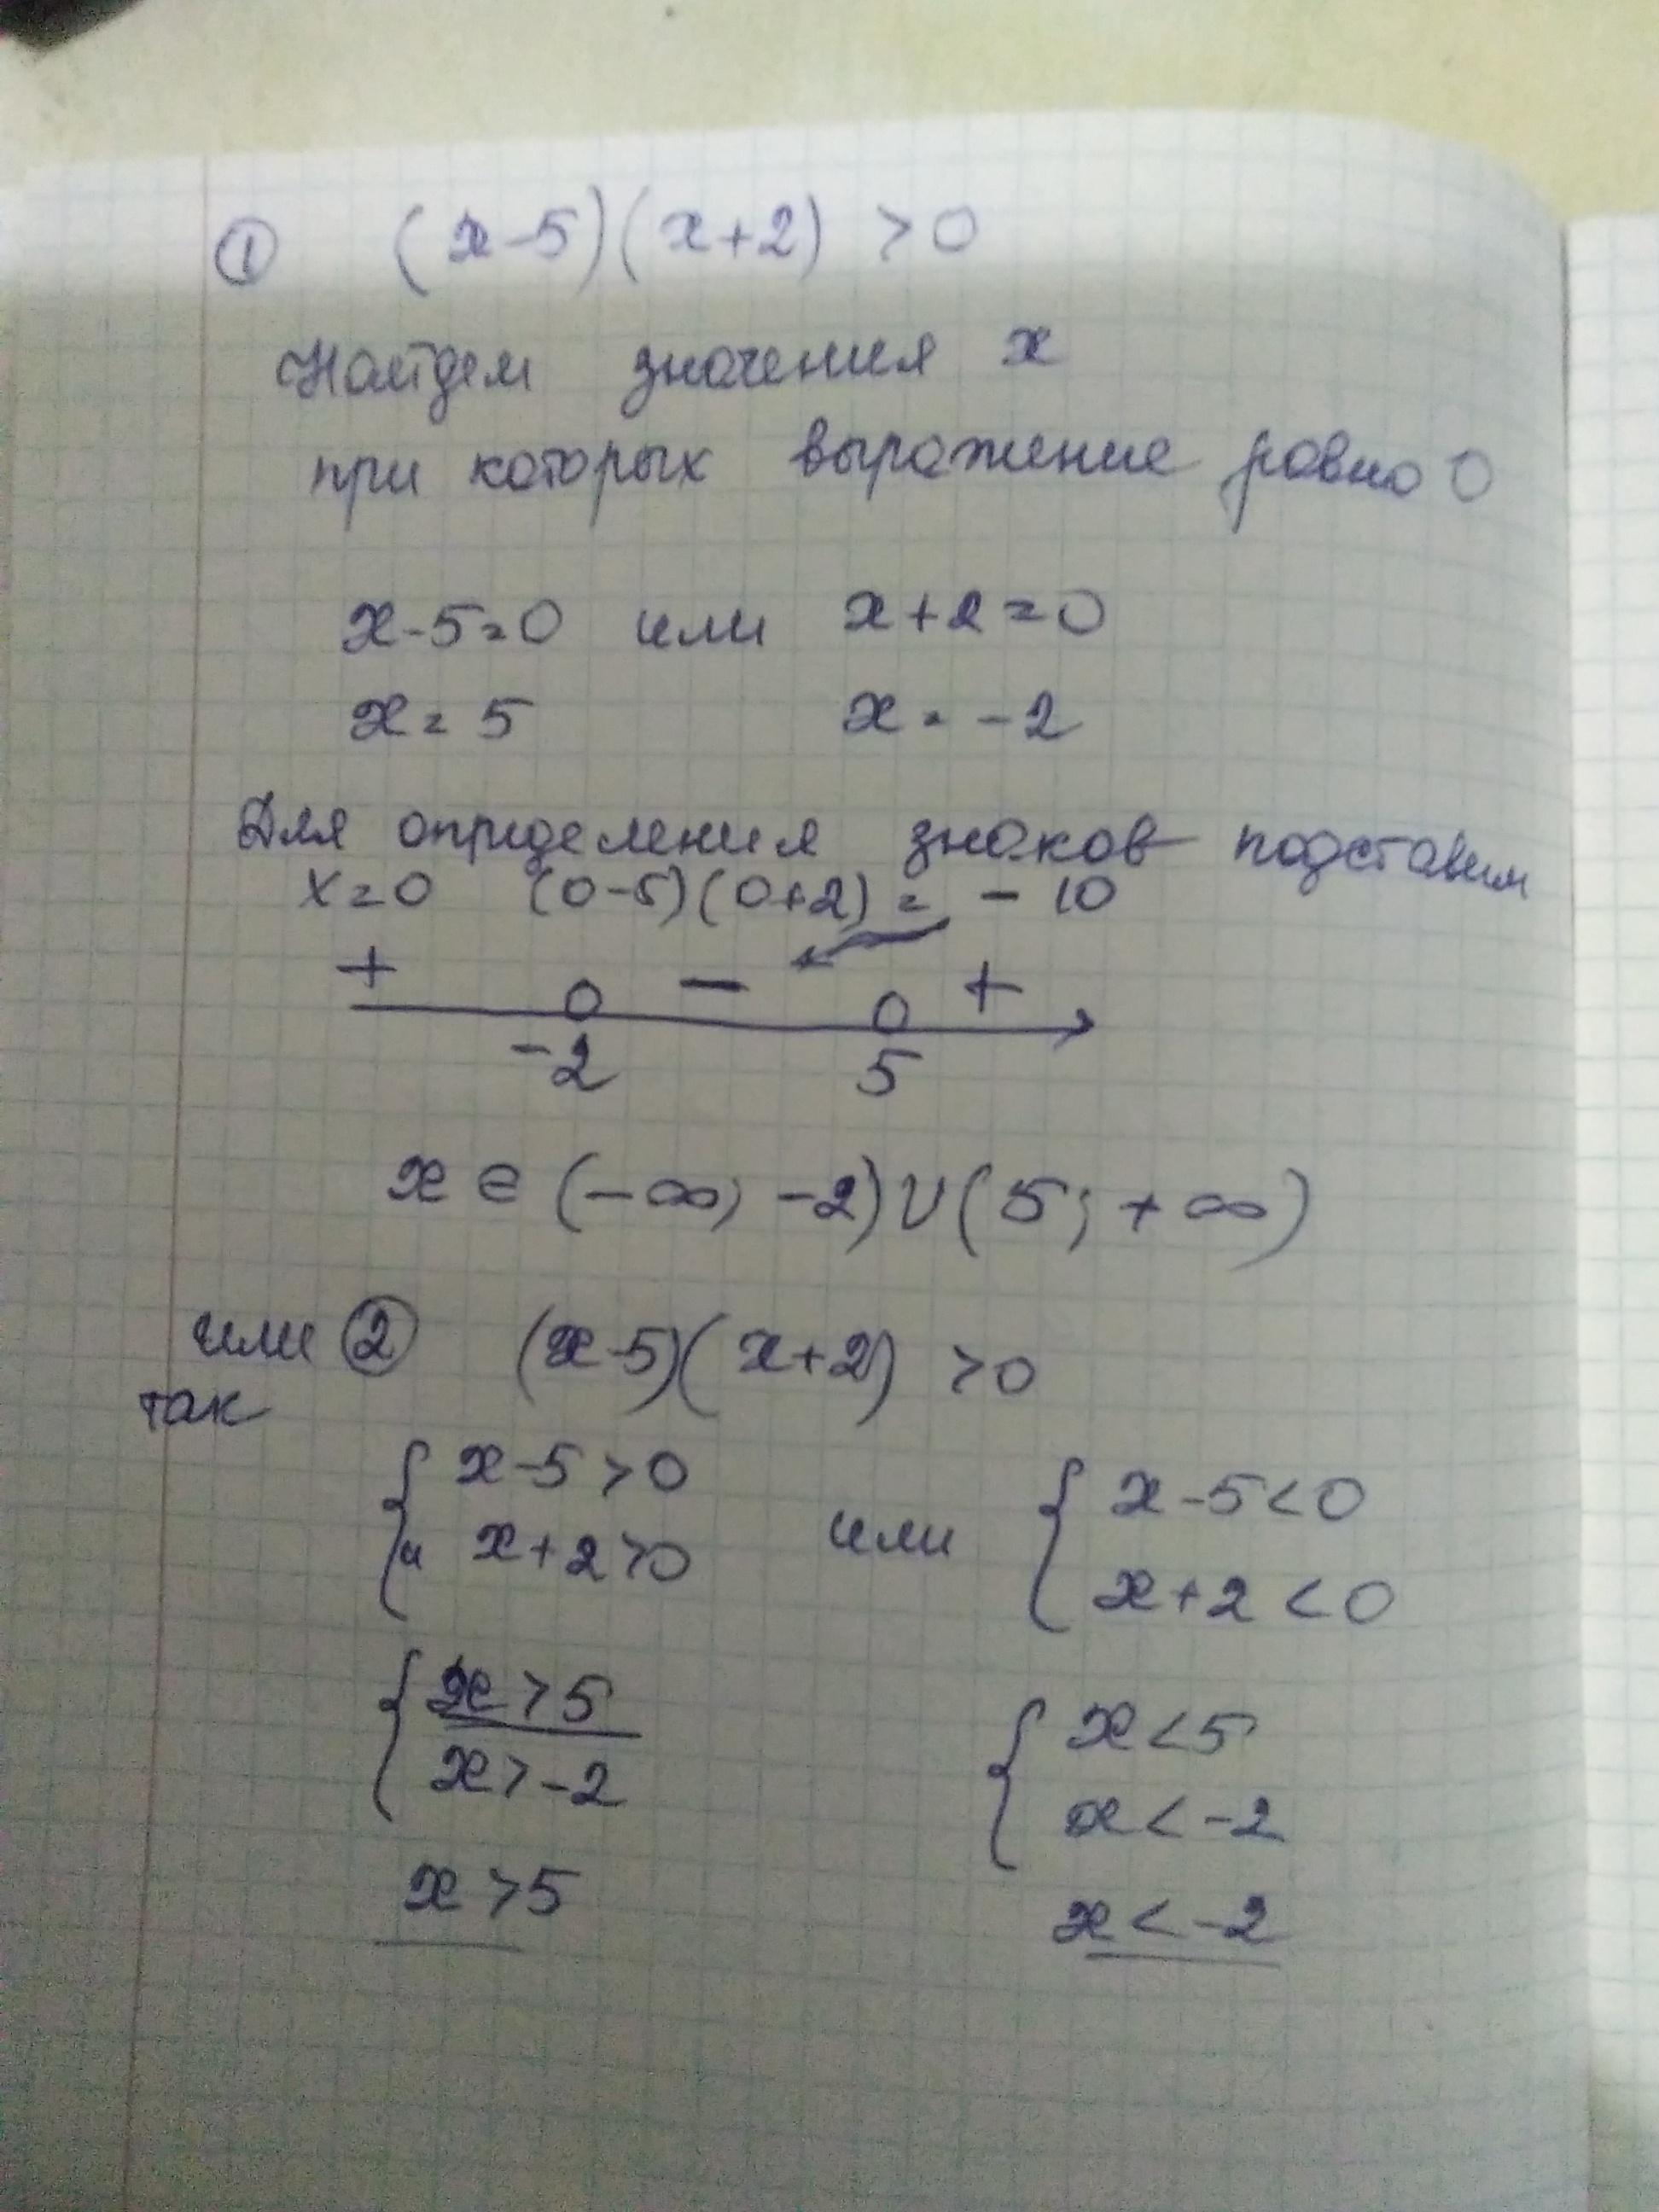 ① (x-5)(x+2) >0
Найдем значения x
при которых выражение равно 0
x-5=0 или x+2=0
x=5 x=-2
Для определения знаков подставим
x=0 (0-5)(0+2)= -10
+ - +
-2 5
x∈(-∞; -2)∪(5; +∞)
или ② (x-5)(x+2) >0
так
{ x-5>0 или { x-5<0
и x+2>0 x+2<0
{ x>5 { x<5
x>-2 x<-2
x>5 x<-2